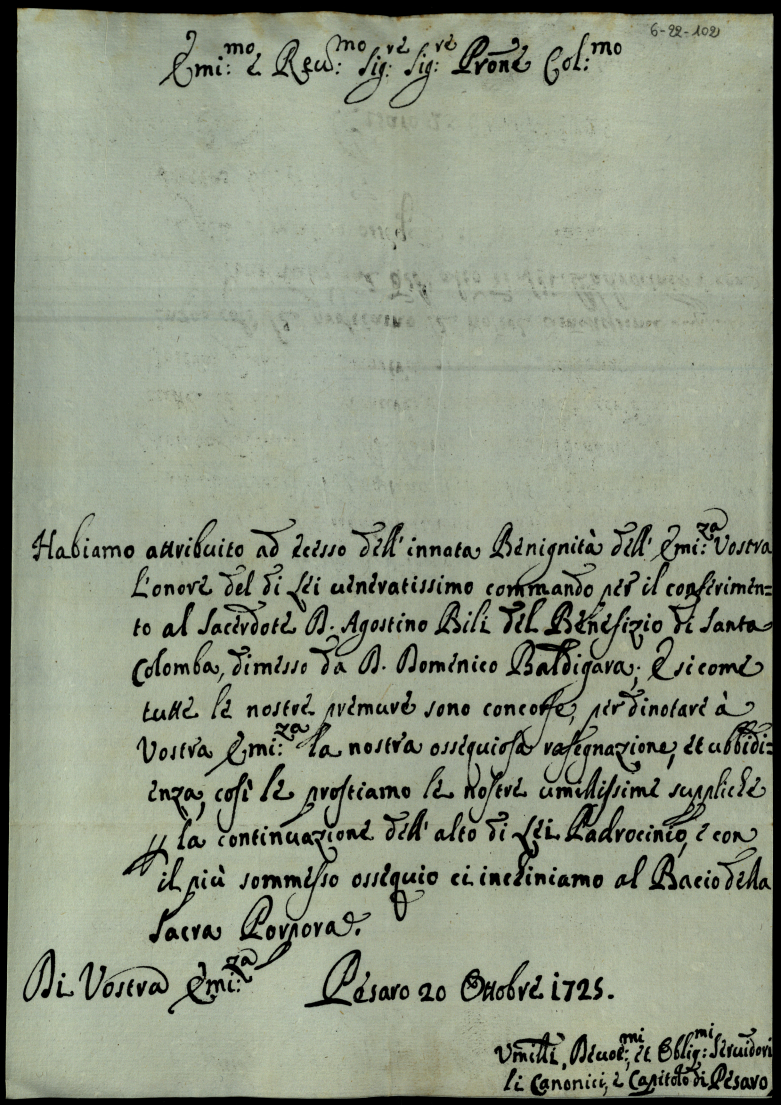 6-22-102
Emi:mo e Reu:mo Sig:re Sig:re Prone Col:mo
Habiamo attribuito ad ecesso dell' innata Benignità dell' Emi:za Vostra
L'onore del di Lei ueneratissimo commando per il conferimen=
to al Sacerdote D. Agostino Bili del Benefizio di Santa
Colomba, dimesso da D. Domenico Baldigara; E sicome
tutte le nostre premure sono concorse, per dinotare à
Vostra Emi:za la nostra ossequiosa rassegnazione, et ubbidi=
enza, così le prostiamo le nostre umilissime suppliche
la continuazione dell' alto di Lei Padrocinio, e con
il più sommesso ossequio ci inchiniamo al Bacio della
Sacra Porpora.
Di Vostra Emi:za Pesaro 20 Ottobre 1725.
Umilli, Deuot:mi, et Oblig:mi Seruidori
li Canonici, e Capitolo di Pesaro